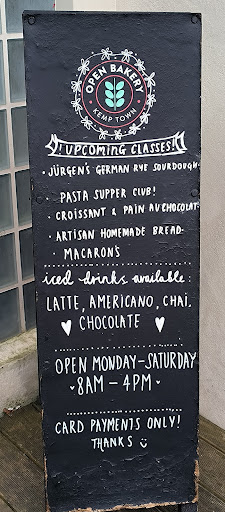 OPEN BAKERY
KEMP TOWN
UPCOMING CLASSES!
· JÜRGEN'S GERMAN RYE SOURDOUGH·
· PASTA SUPPER CLUB!
· CROISSANT & PAIN AU CHOCOLAT·
· ARTISAN HOMEMADE BREAD·
· MACARON'S
iced drinks available:
LATTE, AMERICANO, CHAI,
♥ CHOCOLATE ♥
OPEN MONDAY-SATURDAY
· 8AM - 4PM ·
CARD PAYMENTS ONLY!
THANKS ☺